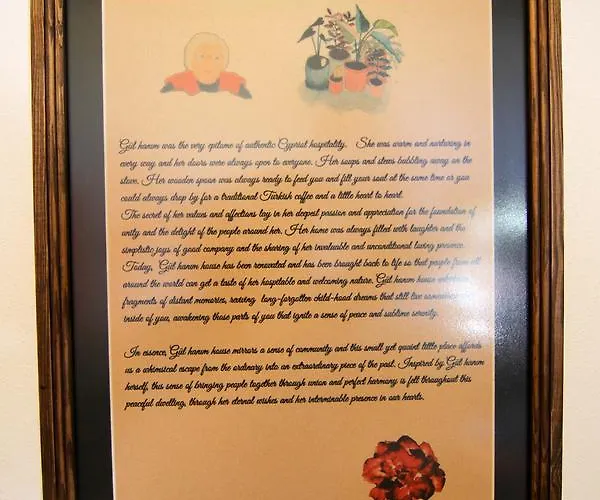 Gül hanım was the very epitome of authentic Cypriot hospitality. She was warm and nurturing in
every way and her doors were always open to everyone. Her soups and stews bubbling away on the
stove. Her wooden spoon was always ready to feed you and fill your soul at the same time or you
could always drop by for a traditional Turkish coffee and a little heart to heart.
The secret of her values and affections lay in her deepest passion and appreciation for the foundation of
unity and the delight of the people around her. Her home was always filled with laughter and the
simplistic joys of good company and the sharing of her invaluable and unconditional loving presence.
Today, Gül hanım house has been renovated and has been brought back to life so that people from all
around the world can get a taste of her hospitable and welcoming nature. Gül hanım house
fragments of distant memories, reviving long-forgotten child-hood dreams that still live somewhere
inside of you, awakening those parts of you that ignite a sense of peace and sublime serenity.
In essence, Gül hanım house mirrors a sense of community and this small yet quaint little place affords
us a whimsical escape from the ordinary into an extraordinary piece of the past. Inspired by Gül hanım
herself, this sense of bringing people together through union and perfect harmony is felt throughout this
peaceful dwelling, through her eternal wishes and her interminable presence in our hearts.